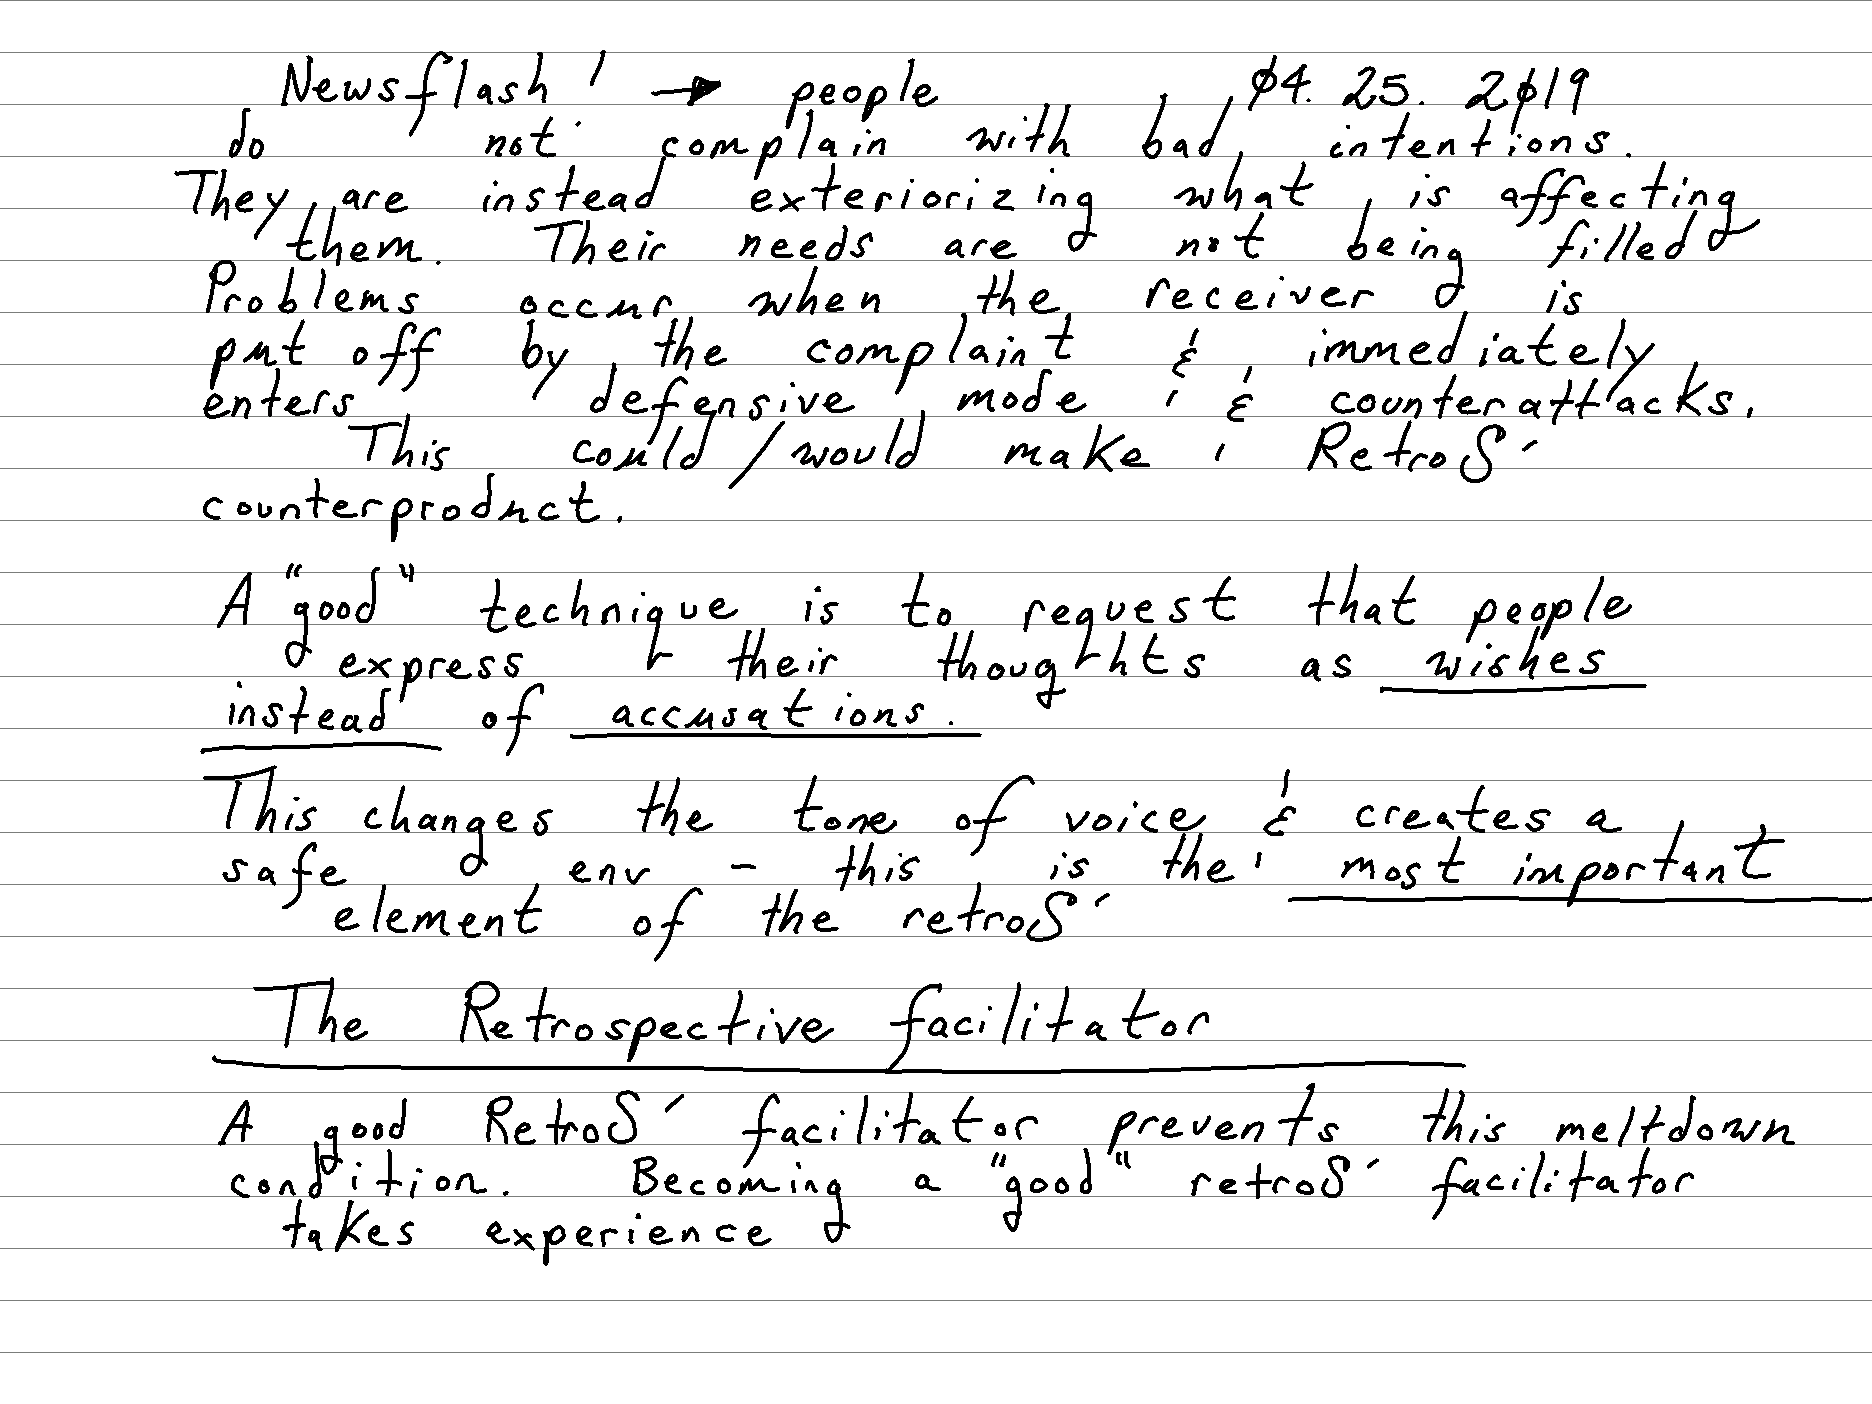 Newsflash! → people 04. 25. 2019
do not complain with bad intentions.
They are instead exteriorizing what is affecting
them. Their needs are not being filled
Problems occur when the receiver is
put off by the complaint & immediately
enters defensive mode & counterattacks.
This could/would make RetroS'
counterproduct.
A "good" technique is to request that people
express their thoughts as wishes
instead of accusations.
This changes the tone of voice & creates a
safe env - this is the most important
element of the retroS'
The Retrospective facilitator
A good RetroS' facilitator prevents this meltdown
condition. Becoming a "good" retroS' facilitator
takes experience